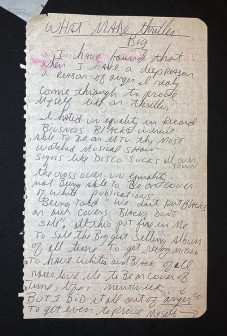 WHAT MADE thriller
Big
I have found that
when I have a deep reason
a reason of anger I realy
come through to prove
Myself but on thriller
I hated in equality in Record
Business Blacks wernt
able to be on MTV the Most
watched Musical station
signs like DISCO SUCKS all over
town
the cross over in equality
not Being able to Be on cover
of white publications
Being told we dont put Blacks
on our covers, Blacks dont
sell, all this put fire in Me
To sell the Biggest Selling Album
of all time to get recognition
To have whites and Black of all
races love Me To Be on Cover of
time, newsweek
BUT I DiD it all out of anger
To get even, to prove Myself